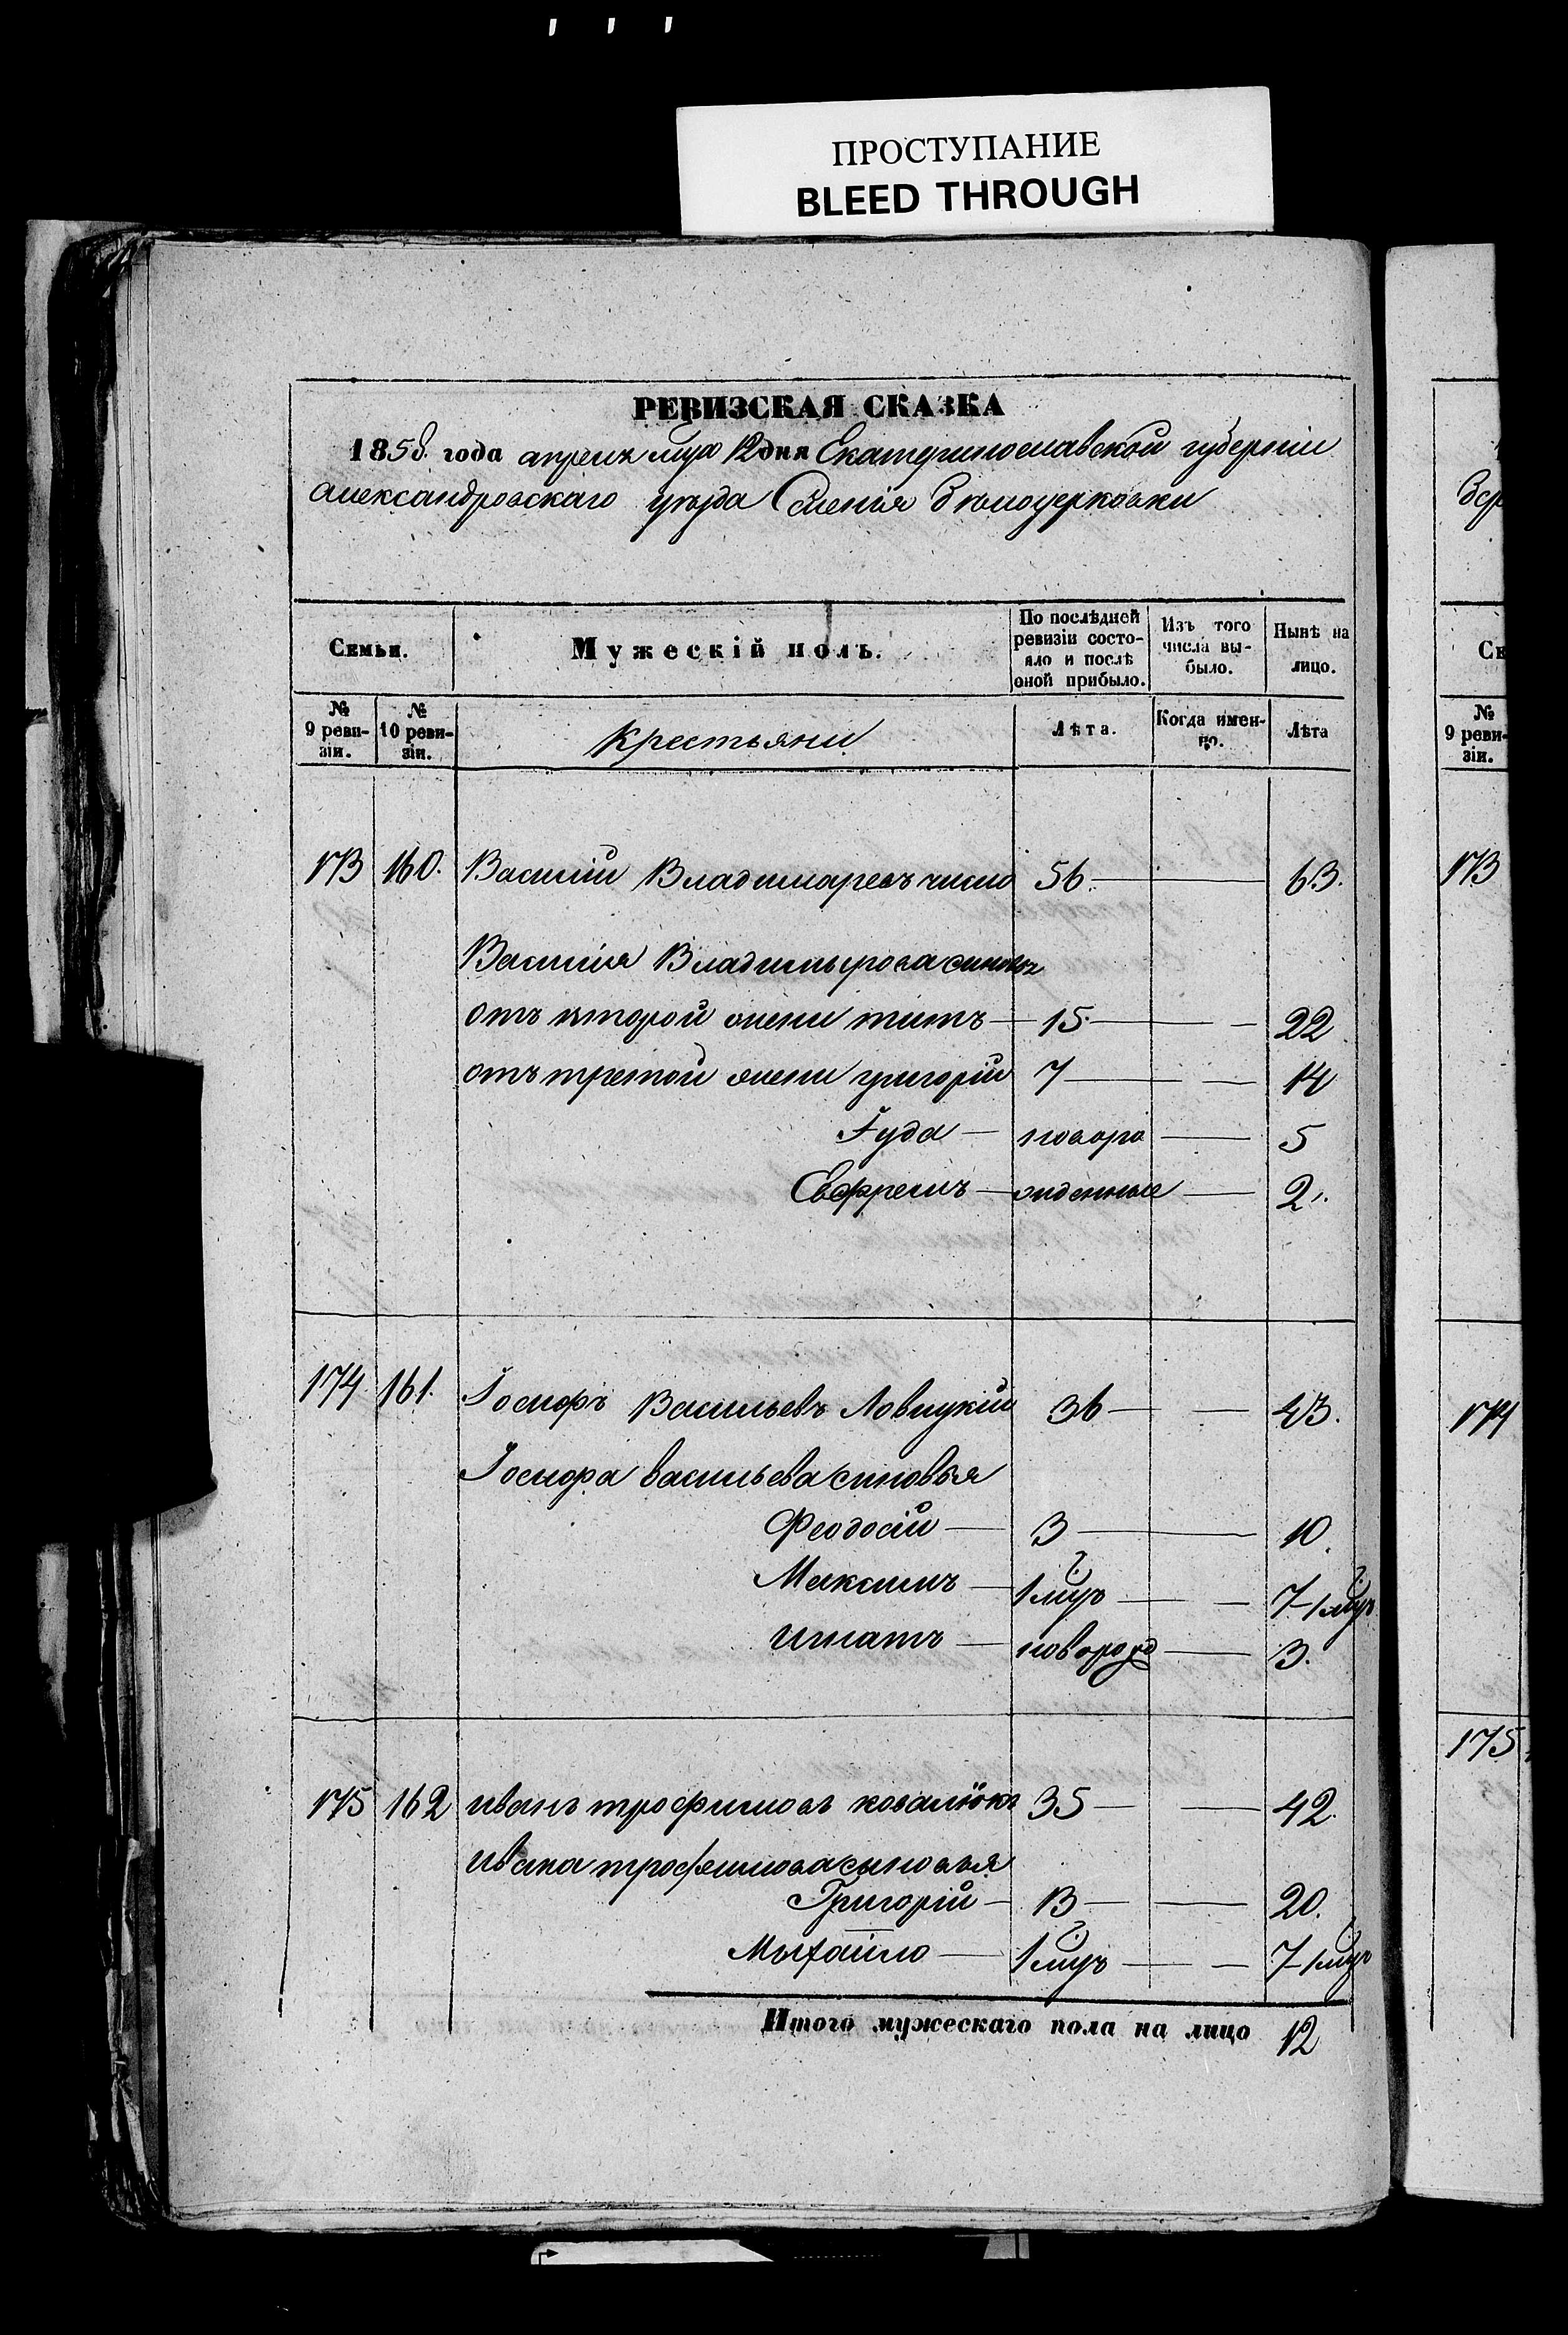 ПРОСТУПАНИЕ
BLEED THROUGH
РЕВИЗСКАЯ СКАЗКА
1858 года апреля мца 12 дня Екатеринославской губернiи
александровскаго уезда Селенiя белоцерковки
Семьи.
Мужескій полъ.
По послѣдней ревизіи состояло и послѣ оной прибыло.
Изъ того числа выбыло.
Нынѣ на лицо.
№ 9 ревизіи.
№ 10 ревизіи.
Крестьяни
Лѣта.
Когда именно.
Лѣта
173 160. Василiй Владимаревъ 56 63.
Василiя Владимырова
отъ второй жени титъ 15 22
отъ третой жени григорiй 7 14
Іуда новоро 5
Евфремъ жденные 2.
174 161. Іосифъ Васильевъ Ловицкiй 36 43.
Іосифа васильева синовья
Феодосiй 3 10.
Максимъ 1 мцъ 7-1 мцъ
игнатъ новорожд 3.
175 162 иванъ трофимовъ ковалюкъ 35 42
ивана трофимова сыновья
Григорiй 13 20.
Мыхайло 1 мцъ 7-1 мцъ
Итого мужескаго пола на лицо 12
Се
№ 9 ревизіи.
173
174
175